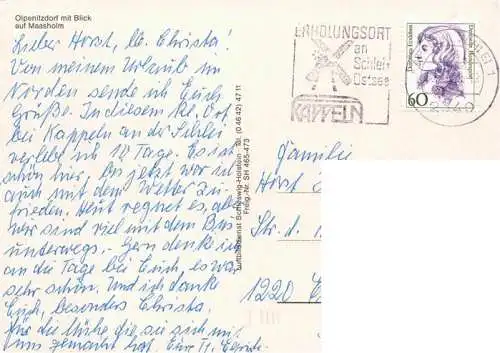 Olpenitzdorf mit Blick
auf Maasholm
Lieber Horst, lb. Christa!
Von meinem Urlaub im
Norden sende ich Euch
Grüße. In diesem kl. Ort
bei Kappeln an der Schlei
verlebe ich 12 Tage. Es ist
schön hier, bis jetzt war ich
auch mit dem Wetter zu-
frieden. Heut regnet es, aber
wir sind viel mit dem Bus
unterwegs. Gern denke ich
an die Tage bei Euch, es war
sehr schön. Und ich danke
Euch, besonders Christa
für die Mühe die sie sich mit
uns gemacht hat.
Luftbilddienst Schleswig-Holstein · Tel. (0 46 42) 47 11
Freig.-Nr. SH 465-473
ERHOLUNGSORT
an
Schlei
Ostsee
KAPPELN
Deutsche Bundespost
60
Familie
Horst
Str. d.
1220